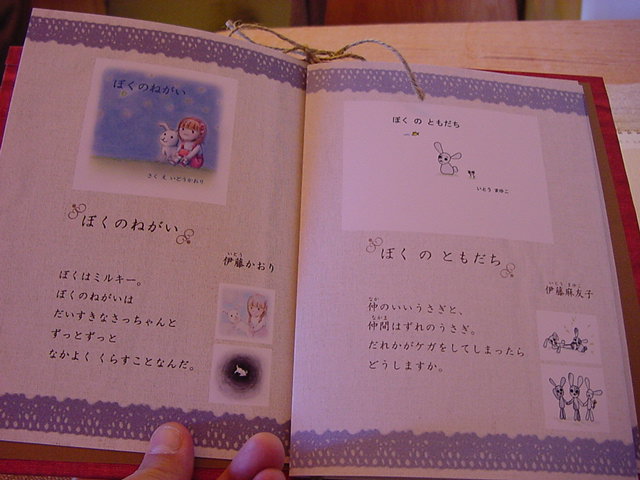 ぼくのねがい
さく え いとうかおり
ぼくのねがい
いとう
伊藤かおり
ぼくはミルキー。
ぼくのねがいは
だいすきなさっちゃんと
ずっとずっと
なかよく くらすことなんだ。
ぼく の ともだち
いとう まゆこ
ぼく の ともだち
いとう まゆこ
伊藤麻友子
なか
仲のいいうさぎと、
なかま
仲間はずれのうさぎ。
だれかがケガをしてしまったら
どうしますか。